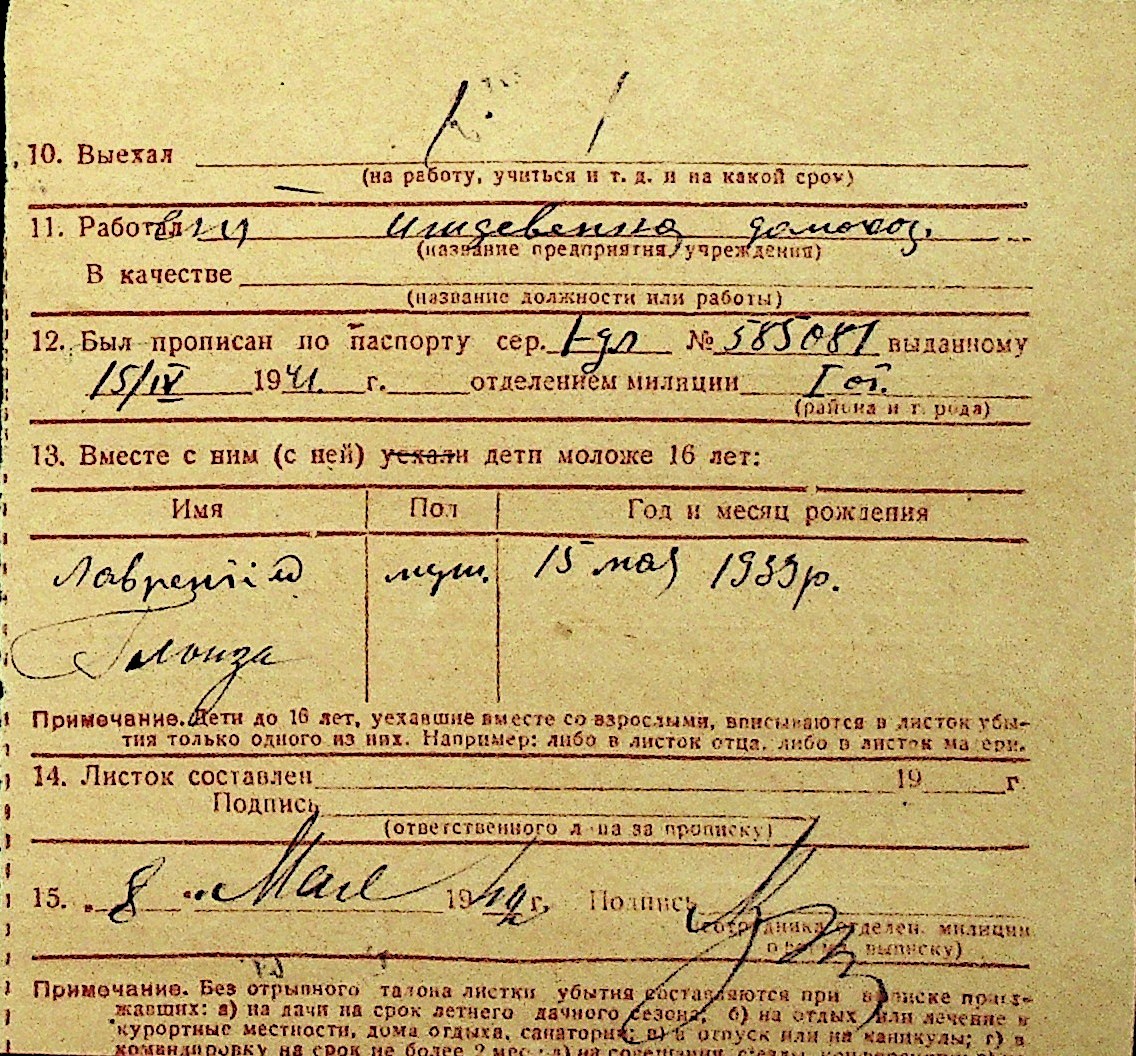 10. Выехал
(на работу, учиться и т. д. и на какой срок)
11. Работал иждевенка домохоз.
(название предприятия, учреждения)
В качестве
(название должности или работы)
12. Был прописан по паспорту сер. № 585081 выданному
15/IV 1941. г. отделением милиции I от.
(района и города)
13. Вместе с ним (с ней) уехали дети моложе 16 лет:
Имя Пол Год и месяц рождения
Лаврентий муж. 15 мая 1939 р.
Примечание. Дети до 16 лет, уехавшие вместе со взрослыми, вписываются в листок убы-
тия только одного из них. Например: либо в листок отца, либо в листок матери.
14. Листок составлен 19 г.
Подпись
(ответственного лица за прописку)
15. „ 8 " Мая 19 г. Подпись
(сотрудника отделен. милиции
выписку)
Примечание. Без отрывного талона листки убытия составляются при выписке приез-
жавших: а) на дачи на срок летнего дачного сезона; б) на отдых или лечение в
курортные местности, дома отдыха, санатории; в) в отпуск или на каникулы; г) в
командировку на срок не более 2 мес.; д) на совещания, съезды,